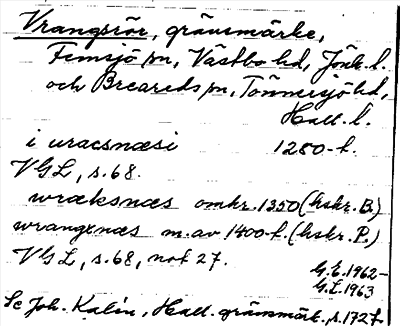 Vrangsrör, gränsmärke,
Femsjö sn, Västbo hd, Jönk. l.
och Breareds sn, Tönnersjö hd,
Hall. l.
i uracsnæsi 1280-t.
VGL, s. 68.
wræksnæs omkr. 1350 (hskr. B.)
wrangenæs m. av 1400-t. (hskr. P.)
VGL, s. 68, not 27.
G.E. 1962-
G.E. 1963
Se Joh. Kalén, Hall. gränsmärk., s. 172 f.